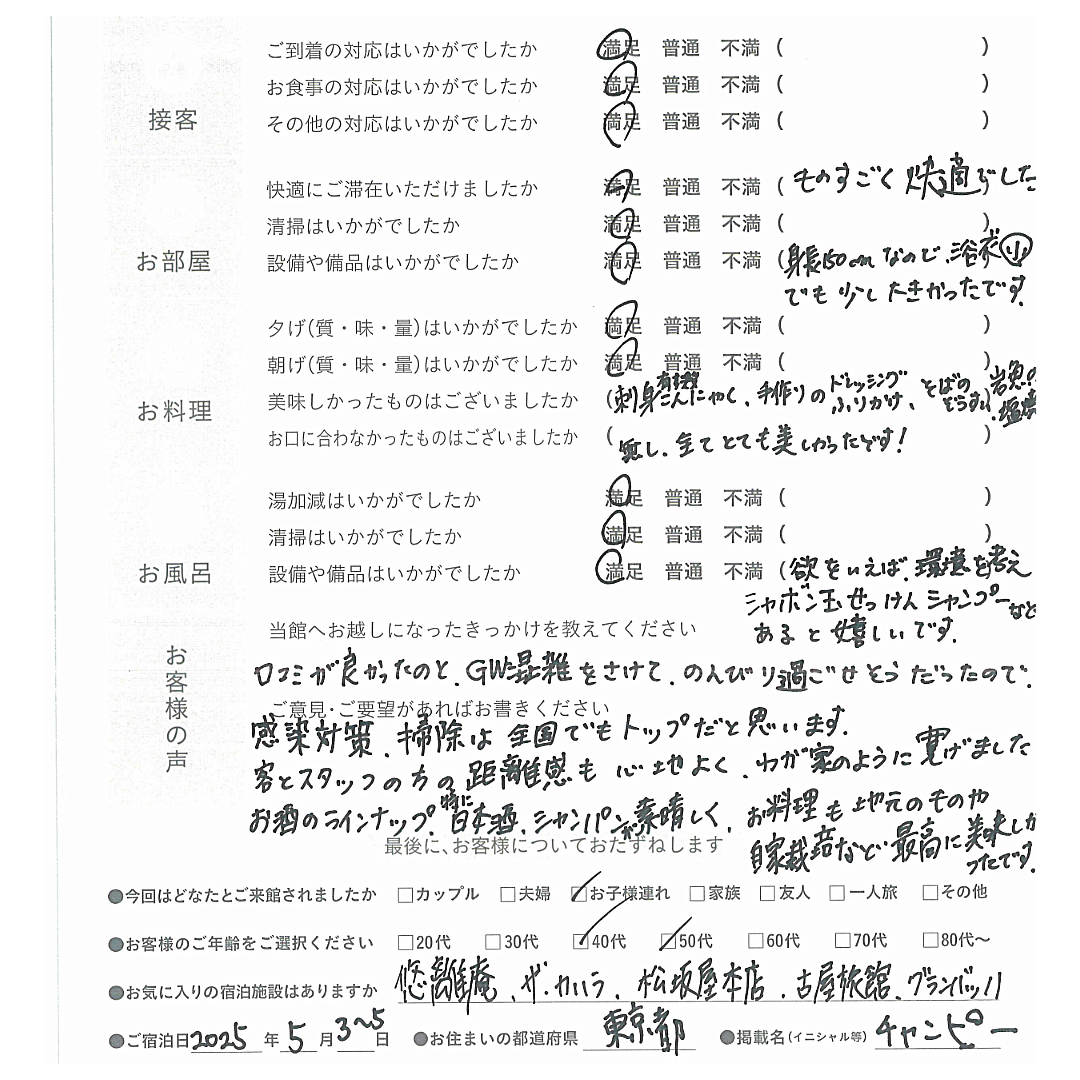 ご到着の対応はいかがでしたか 満足 普通 不満 ( )
お食事の対応はいかがでしたか 満足 普通 不満 ( )
接客
その他の対応はいかがでしたか 満足 普通 不満 ( )
快適にご滞在いただけましたか 満足 普通 不満 ( ものすごく快適でした
清掃はいかがでしたか 満足 普通 不満 ( )
お部屋
設備や備品はいかがでしたか 満足 普通 不満 ( 身長150cmなので、浴衣小
でも少し大きかったです。
夕げ(質・味・量)はいかがでしたか 満足 普通 不満 ( )
朝げ(質・味・量)はいかがでしたか 満足 普通 不満 ( )
お料理
美味しかったものはございましたか (刺身こんにゃく、手作りのドレッシング ふりかけ、そばの ぞうすい) 岩魚の塩焼
お口に合わなかったものはございましたか ( 無し。全てとても美しかったです! )
湯加減はいかがでしたか 満足 普通 不満 ( )
清掃はいかがでしたか 満足 普通 不満 ( )
お風呂
設備や備品はいかがでしたか 満足 普通 不満 ( 欲をいえば、環境を考え
シャボン玉せっけんシャンプーなど
あると嬉しいです。
お客様の声
当館へお越しになったきっかけを教えてください
口コミが良かったのと、GW混雑をさけて、のんびり過ごせそうだったので。
ご意見・ご要望があればお書きください
感染対策、掃除は全国でもトップだと思います。
客とスタッフの方の距離感も心地よく、わが家のように寛げました
お酒のラインナップ、特に日本酒、シャンパンが素晴しく、お料理も地元のものや
自家栽培など最高に美味しか
ったです。
最後に、お客様についておたずねします
●今回はどなたとご来館されましたか □カップル □夫婦 ☑お子様連れ □家族 □友人 □一人旅 □その他
●お客様のご年齢をご選択ください □20代 □30代 ☑40代 ☑50代 □60代 □70代 □80代〜
●お気に入りの宿泊施設はありますか 悠離庵、ザ・カハラ、松坂屋本店、古屋旅館、グランバッハ
●ご宿泊日 2025 年 5 月 3〜5 日 ●お住まいの都道府県 東京都 ●掲載名(イニシャル等) チャンピー